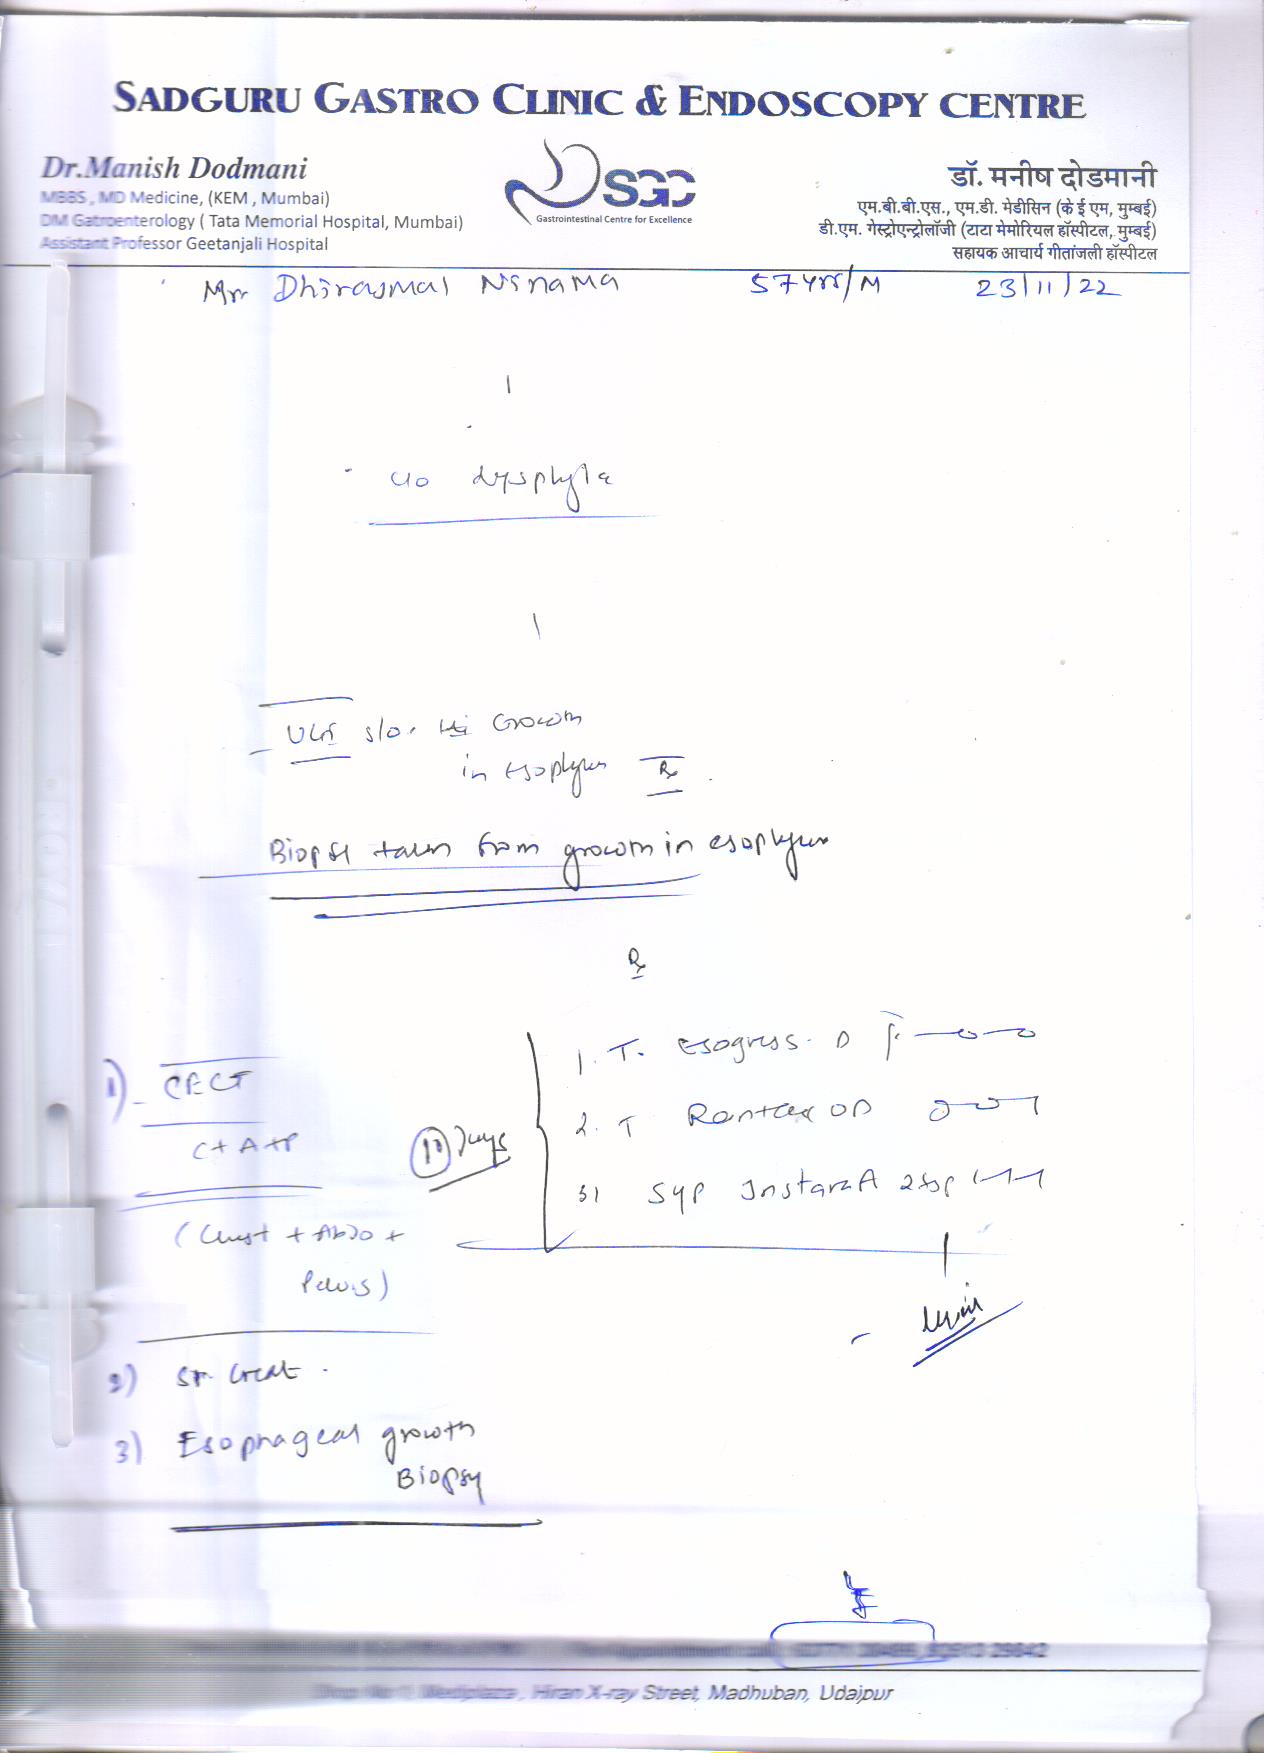 SADGURU GASTRO CLINIC & ENDOSCOPY CENTRE
Dr.Manish Dodmani
MBBS , MD Medicine, (KEM , Mumbai)
DM Gatroenterology ( Tata Memorial Hospital, Mumbai)
Assistant Professor Geetanjali Hospital
SGC
Gastrointestinal Centre for Excellence
डॉ. मनीष दोडमानी
एम.बी.बी.एस., एम.डी. मेडीसिन (के ई एम, मुम्बई)
डी.एम. गेस्ट्रोएन्ट्रोलॉजी (टाटा मेमोरियल हॉस्पीटल, मुम्बई)
सहायक आचार्य गीतांजली हॉस्पीटल
Mr Dhirajmal Ninama 57yrs/M 23/11/22
c/o dysphgia
s/o. Growth
in esophgus
Biopsy taken from growth in esophgus
Rx
1. T. Esogress. D
2. T Rantac OD
3) Syp Instaraft 2tsp
10 Days
1) CECT
C+A+P
(Chest + Abdo +
Pelvis)
2) Sr. Creat.
3) Esophageal growth
Biopsy
Hiran X-ray Street, Madhuban, Udaipur